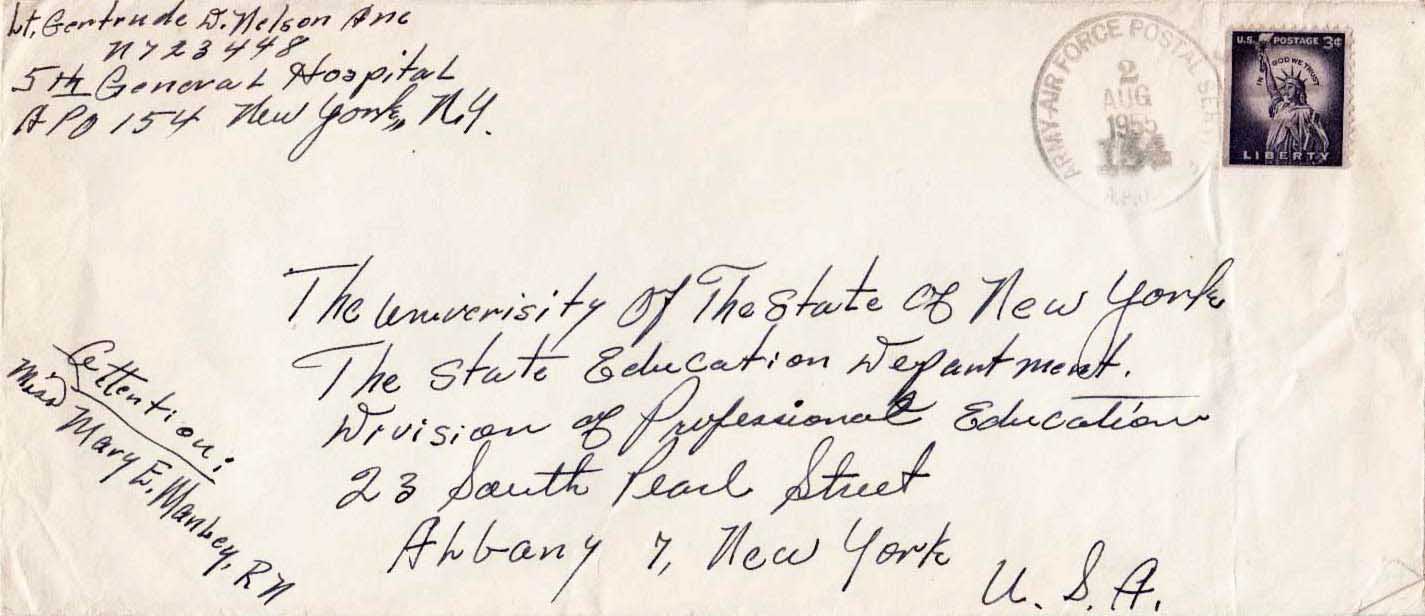 Lt. Gertrude D. Nelson Anc
N 723448
5th General Hospital
APO 154 New York, N.Y.
ARMY-AIR FORCE POSTAL SERV
2
AUG
1955
154
A.P.O.
U.S. POSTAGE 3¢
IN GOD WE TRUST
LIBERTY
The Univerisity Of The State Of New York
The State Education Department.
Division of Professional Education
23 South Pearl Street
Albany 7, New York
U. S. A.
Attention:
Miss Mary E. Manley, RN